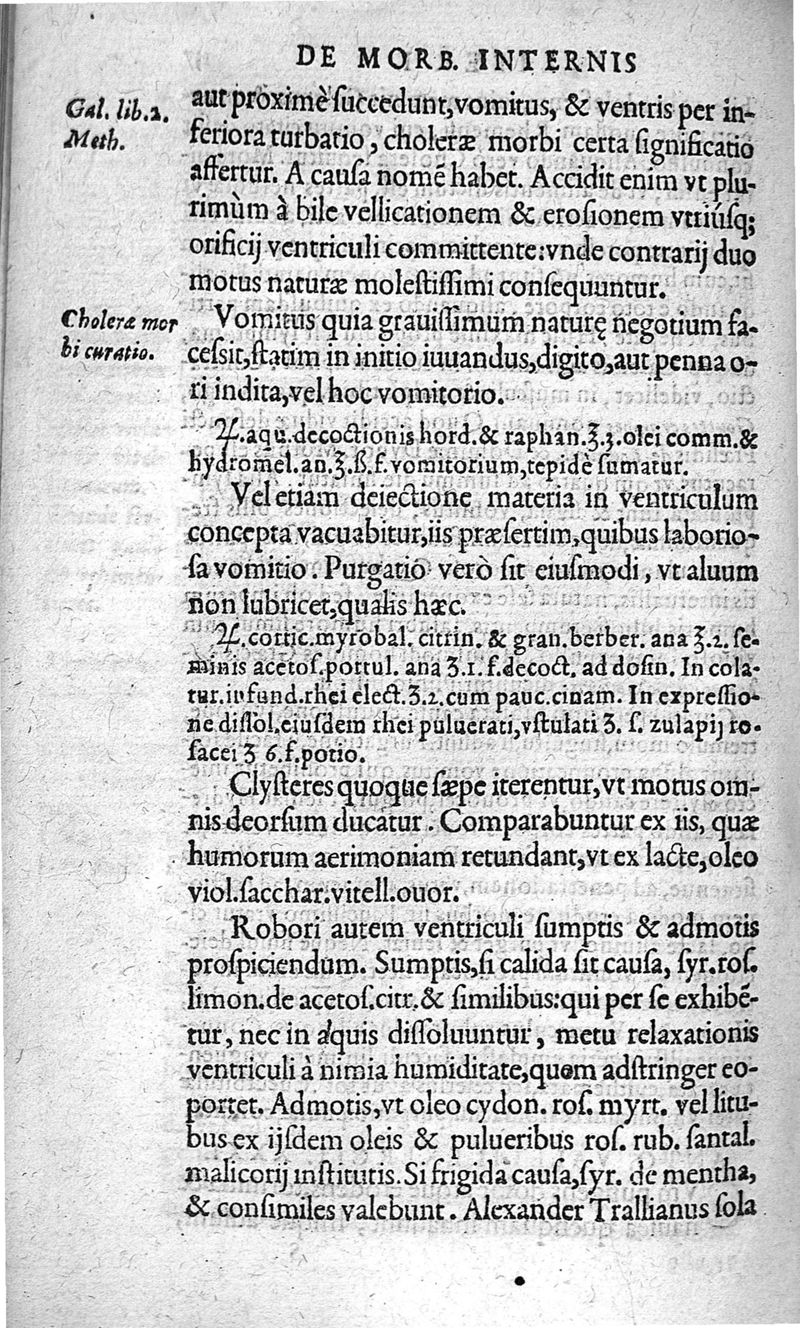 DE MORB. INTERNIS
Gal. lib.2.
Meth.
aut proximè ſuccedunt, vomitus, & ventris per in-
feriora turbatio, choleræ morbi certa ſignificatio
affertur. A cauſa nomē habet. Accidit enim vt plu-
rimùm à bile vellicationem & eroſionem vtriúſq;
orificij ventriculi committente: vnde contrarij duo
motus naturæ moleſtiſſimi conſequuntur.
Choleræ mor
bi curatio.
Vomitus quia grauiſſimum naturę negotium fa-
ceſsit, ſtatim in initio iuuandus, digito, aut penna o-
ri indita, vel hoc vomitorio.
℞. aqu. decoctionis hord. & raphan. ℥.3. olei comm. &
hydromel. an. ℥. ß. f. vomitorium, tepidè ſumatur.
Vel etiam deiectione materia in ventriculum
concepta vacuabitur, iis præſertim, quibus laborio-
ſa vomitio. Purgatio verò ſit eiuſmodi, vt aluum
non lubricet, qualis hæc.
℞. cortic. myrobal. citrin. & gran. berber. ana ʒ.2. ſe-
minis acetoſ. portul. ana ʒ.1. f. decoct. ad doſin. In cola-
tur. infund. rhei elect. ʒ.2. cum pauc. cinam. In expreſſio-
ne diſſol. eiuſdem rhei puluerati, vſtulati ʒ. ſ. zulapij ro-
ſacei ʒ 6. f. potio.
Clyſteres quoque ſæpe iterentur, vt motus om-
nis deorſum ducatur. Comparabuntur ex iis, quæ
humorum aerimoniam retundant, vt ex lacte, oleo
viol. ſacchar. vitell. ouor.
Robori autem ventriculi ſumptis & admotis
proſpiciendum. Sumptis, ſi calida ſit cauſa, ſyr. roſ.
limon. de acetoſ. citr. & ſimilibus: qui per ſe exhibē-
tur, nec in aquis diſſoluuntur, metu relaxationis
ventriculi à nimia humiditate, quem adſtringer eo-
portet. Admotis, vt oleo cydon. roſ. myrt. vel litu-
bus ex ijſdem oleis & pulueribus roſ. rub. ſantal.
malicorij inſtitutis. Si frigida cauſa, ſyr. de mentha,
& conſimiles valebunt. Alexander Trallianus ſola